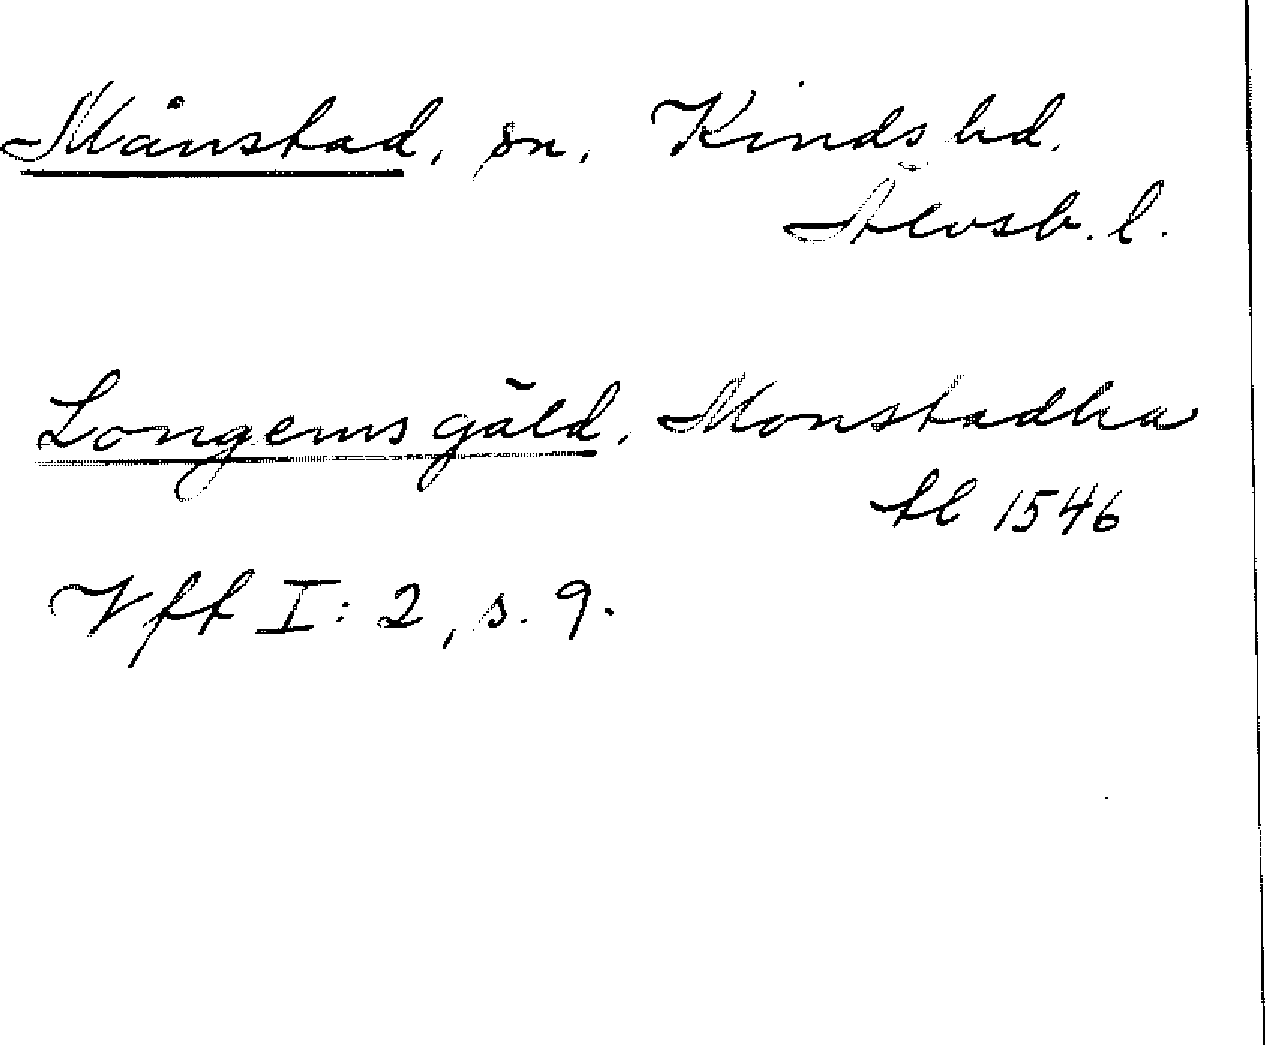 Månstad, sn, Kinds hd.
Älvsb. l.
Longems gäld, Monstadha
tl 1546
Vff I: 2, s. 9.